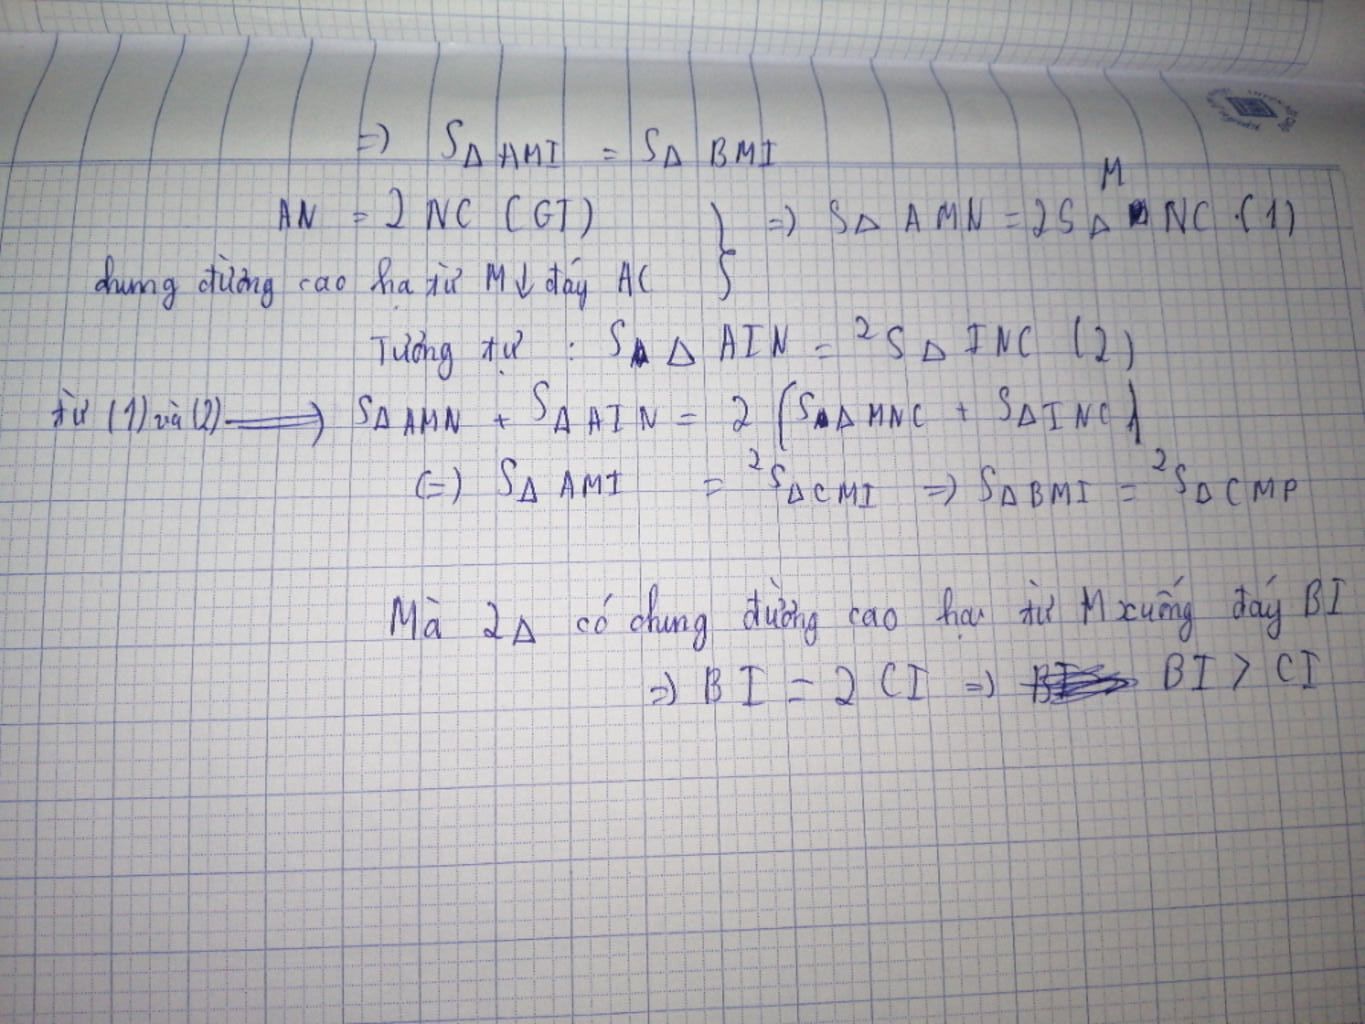 => SΔ AMI = SΔ BMI
AN = 2 NC (GT) } => SΔ AMN = 2SΔ MNC (1)
chung đường cao hạ từ M↓ đáy AC
Tương tự : SΔ AIN = 2SΔ INC (2)
từ (1) và (2) => SΔ AMN + SΔ AIN = 2 (SΔ MNC + SΔ INC)
(=) SΔ AMI = 2SΔ CMI => SΔ BMI = 2SΔ CMP
Mà 2Δ có chung đường cao hạ từ M xuống đáy BI
=> BI = 2 CI => BI > CI